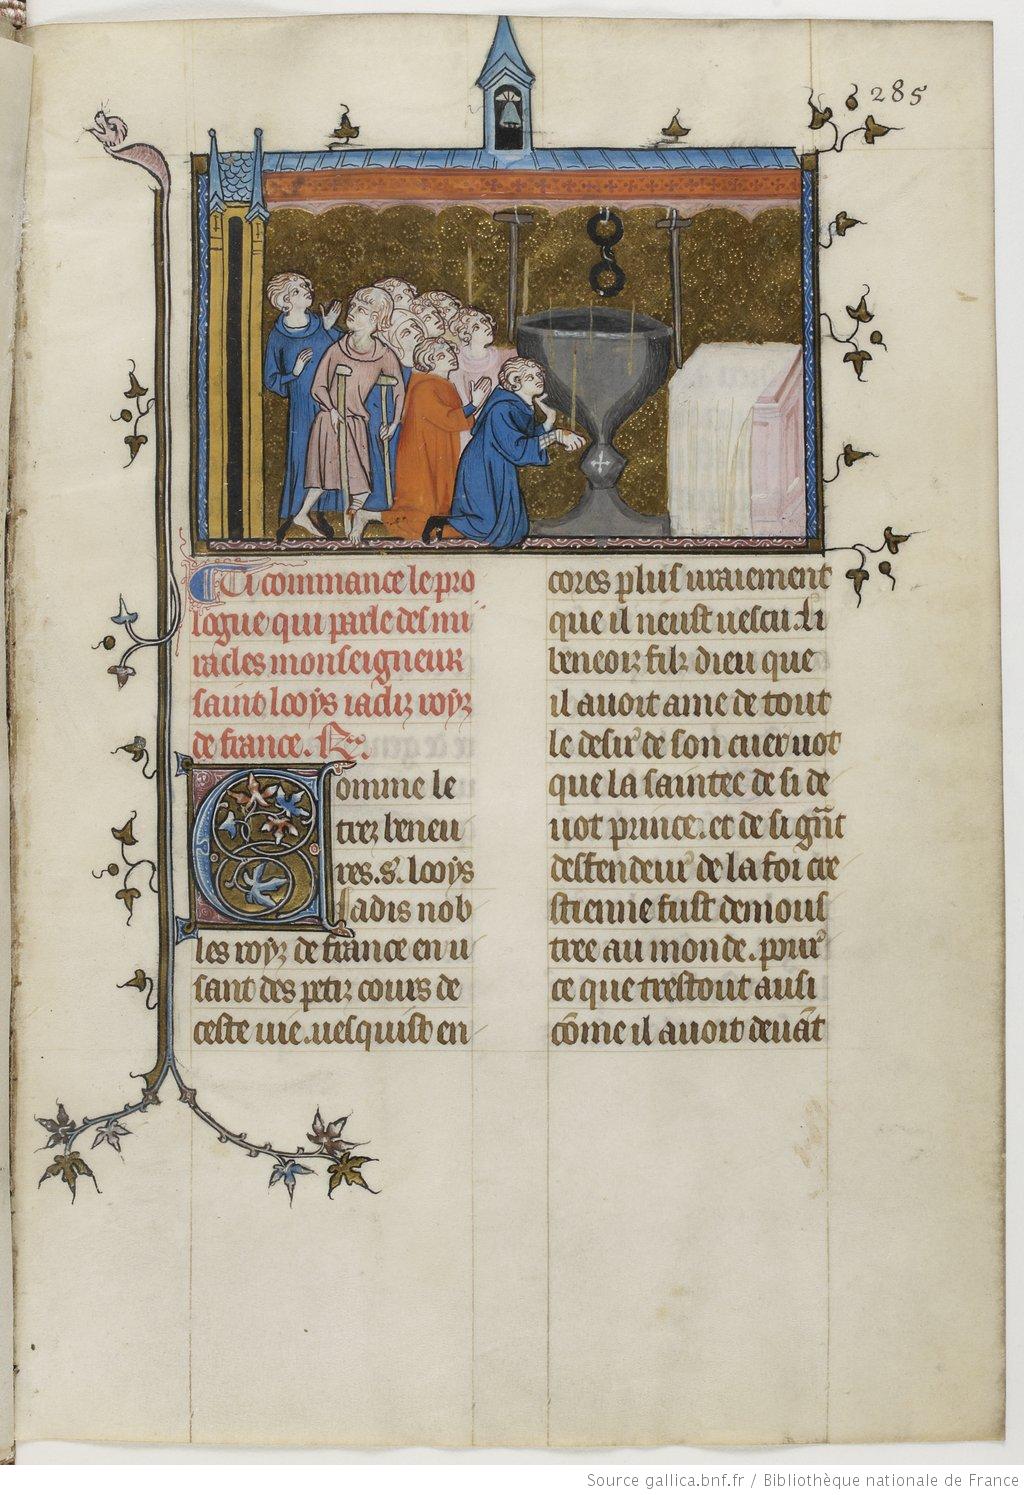 285
Ci commance le pro
logue qui parle des mi
racles monseigneur
saint looys iadiz roys
de france. Rx.
Comme le
trez beneu
res .s. looys
iadis nob
les roys de france en u
sant des petiz cours de
ceste vie . vesquist en
cores plus uraiement
que il neust uescu. Li
beneoiz filz dieu que
il auoit ame de tout
le desir de son cuer uot
que la saintee de si de
uot prince. et de si gñt
deffendeur de la foi cre
stienne fust demous
tree au monde. pour
ce que trestout ausi
cõme il auoit deuãt
Source gallica.bnf.fr / Bibliothèque nationale de France